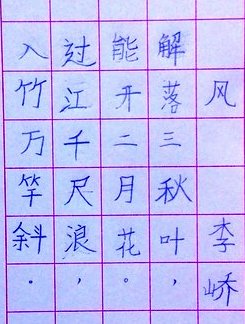 风 李峤
解落三秋叶，
能开二月花。
过江千尺浪，
入竹万竿斜.